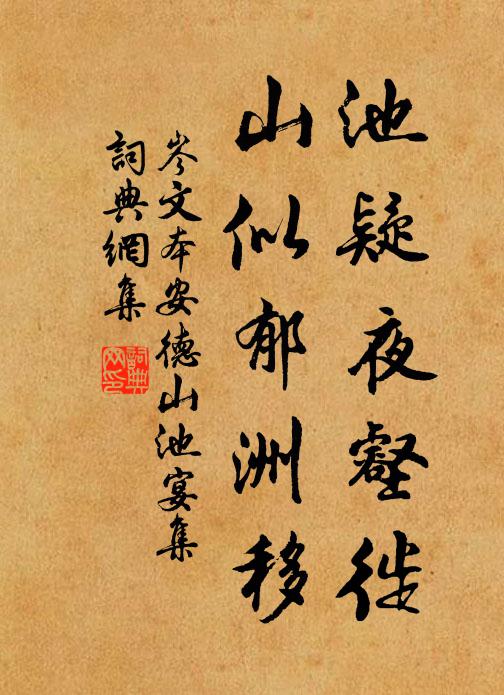 池疑夜壑徙
山似郁洲移
岑文本安德山池宴集
詞典網集
詞典
网印